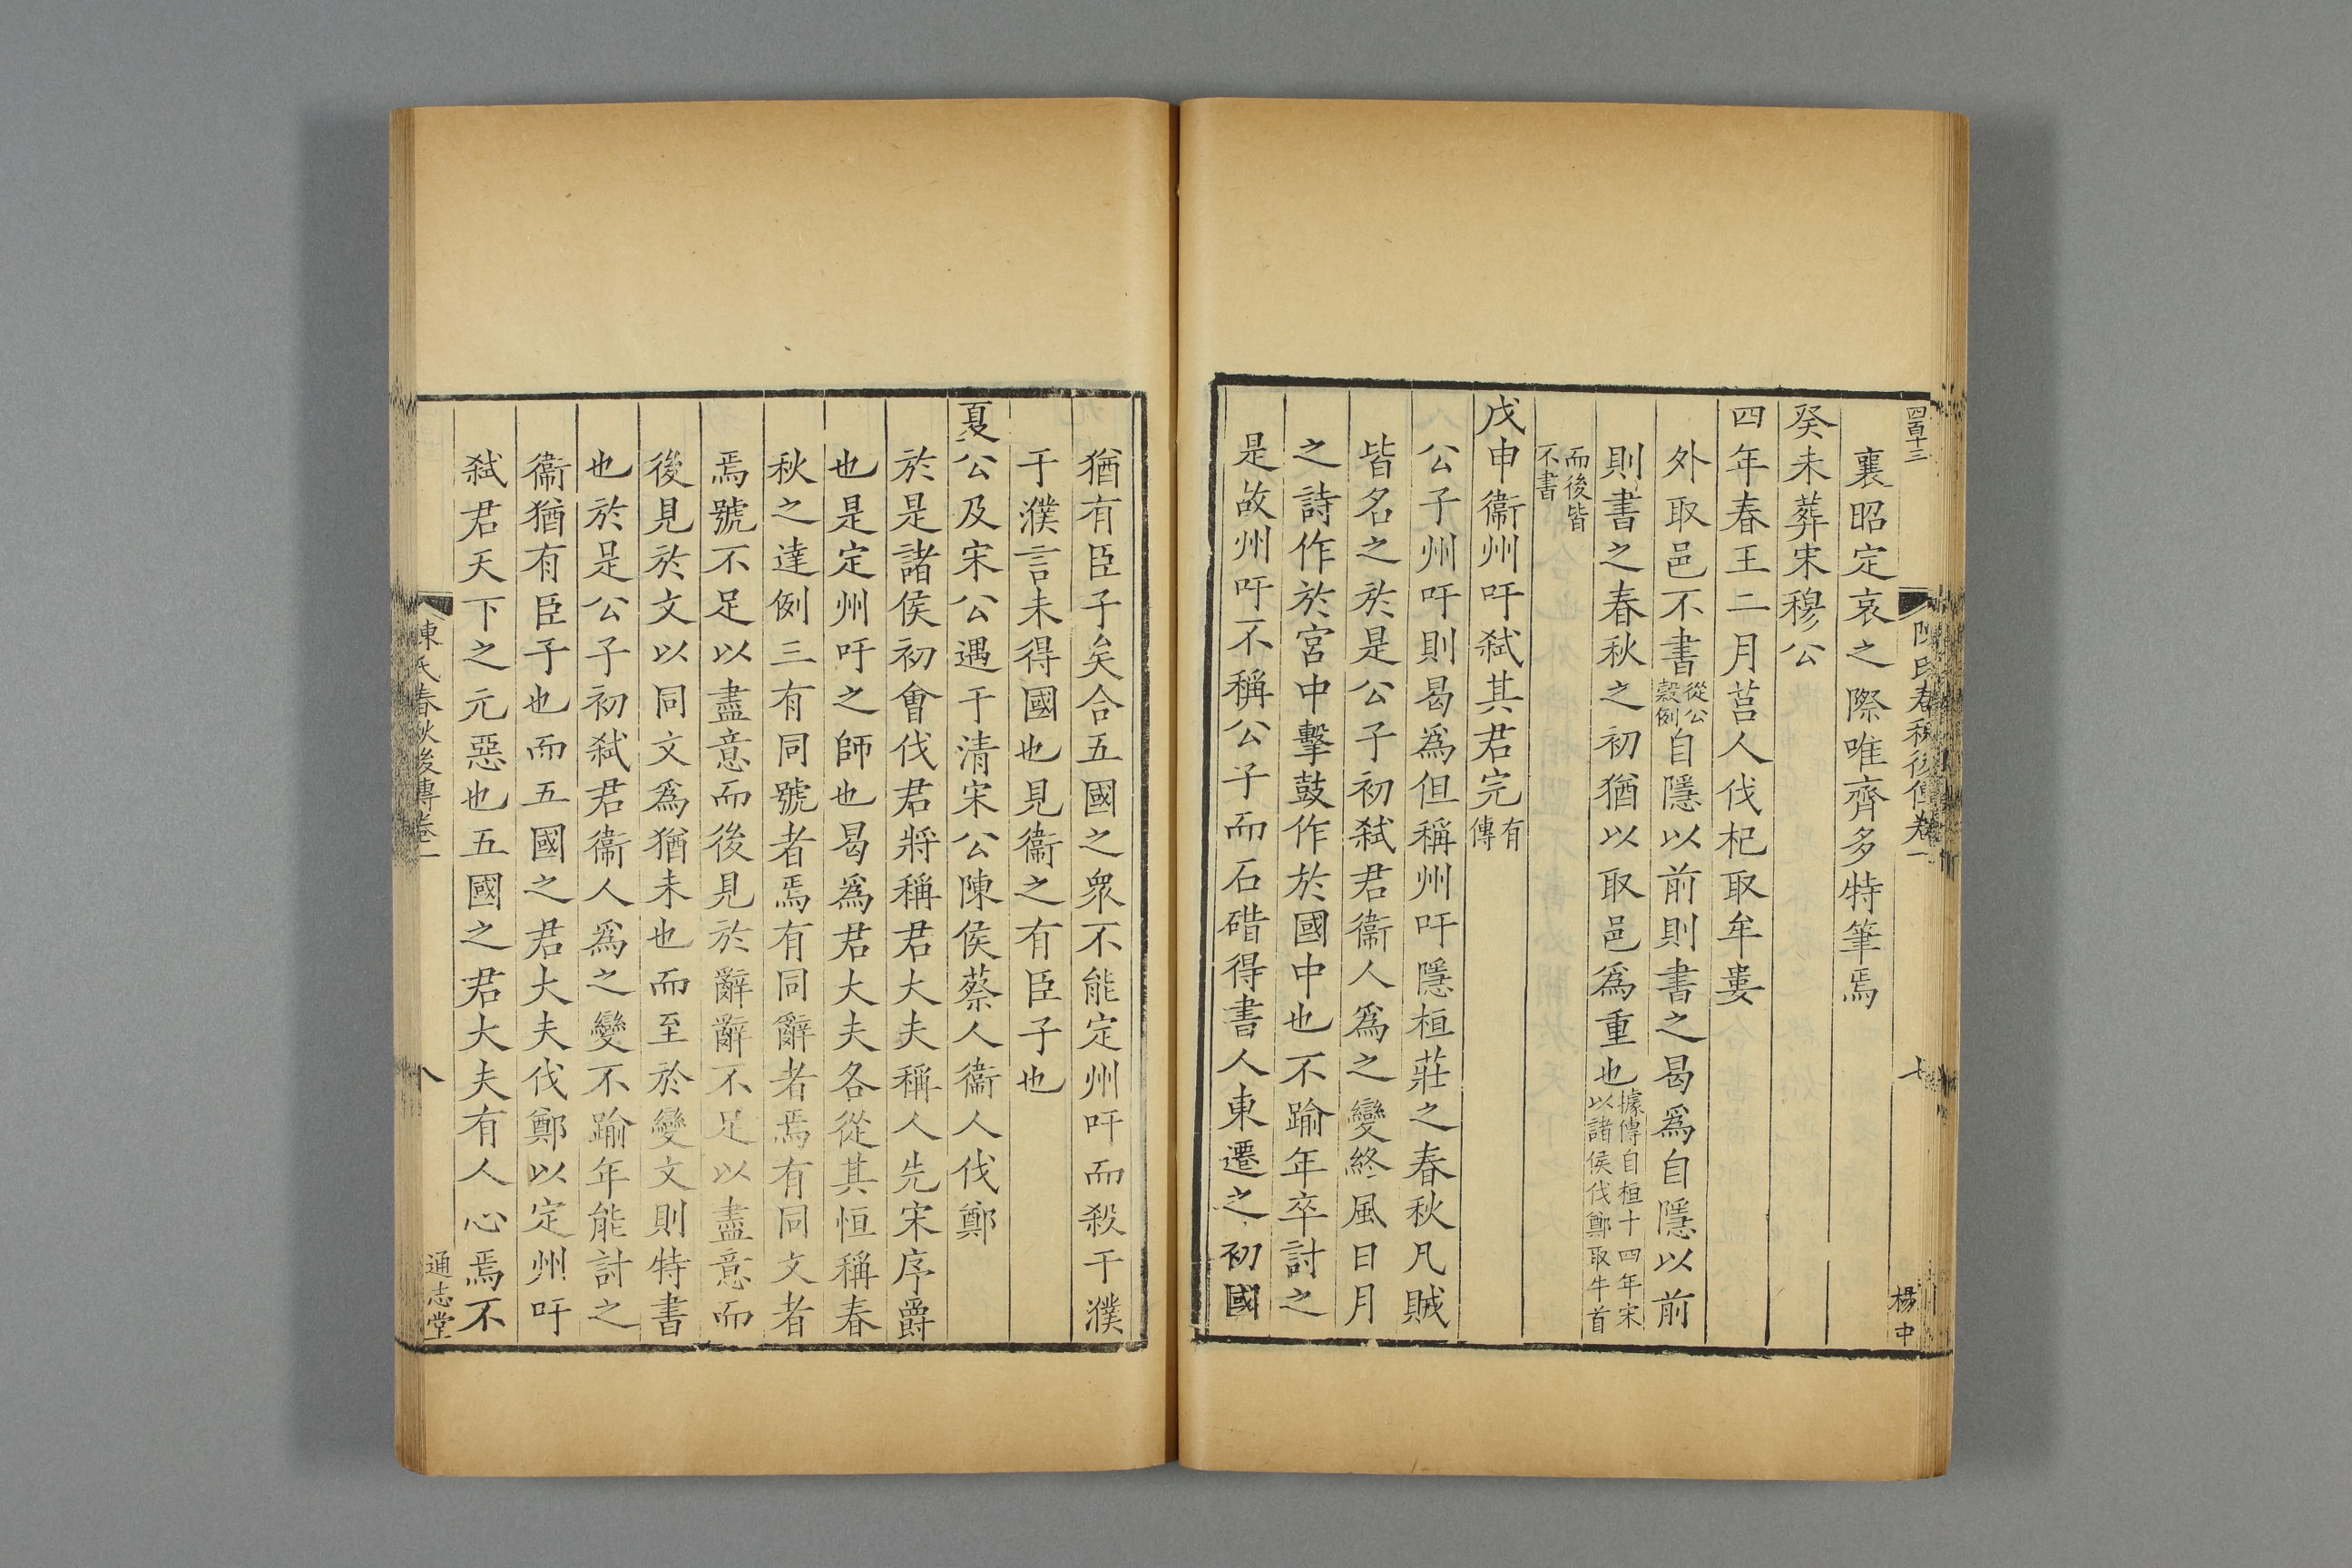 四百十三
陳氏春秋後傳卷一
七
楊中
襄昭定哀之際唯齊多特筆焉
癸未葬宋穆公
四年春王二月莒人伐杞取牟婁
外取邑不書從公穀例自隱以前則書之曷爲自隱以前
則書之春秋之初猶以取邑爲重也據傳自桓十四年宋以諸侯伐鄭取牛首
而後皆不書
戊申衞州吁弑其君完有傳
公子州吁則曷爲但稱州吁隱桓莊之春秋凡賊
皆名之於是公子初弑君衞人爲之變終風日月
之詩作於宮中擊鼓作於國中也不踰年卒討之
是故州吁不稱公子而石碏得書人東遷之初國
猶有臣子矣合五國之衆不能定州吁而殺于濮
于濮言未得國也見衞之有臣子也
夏公及宋公遇于清宋公陳侯蔡人衞人伐鄭
於是諸侯初會伐君將稱君大夫稱人先宋序爵
也是定州吁之師也曷爲君大夫各從其恒稱春
秋之達例三有同號者焉有同辭者焉有同文者
焉號不足以盡意而後見於辭辭不足以盡意而
後見於文以同文爲猶未也而至於變文則特書
也於是公子初弑君衞人爲之變不踰年能討之
衞猶有臣子也而五國之君大夫伐鄭以定州吁
弑君天下之元惡也五國之君大夫有人心焉不
陳氏春秋後傳卷一
八
通志堂